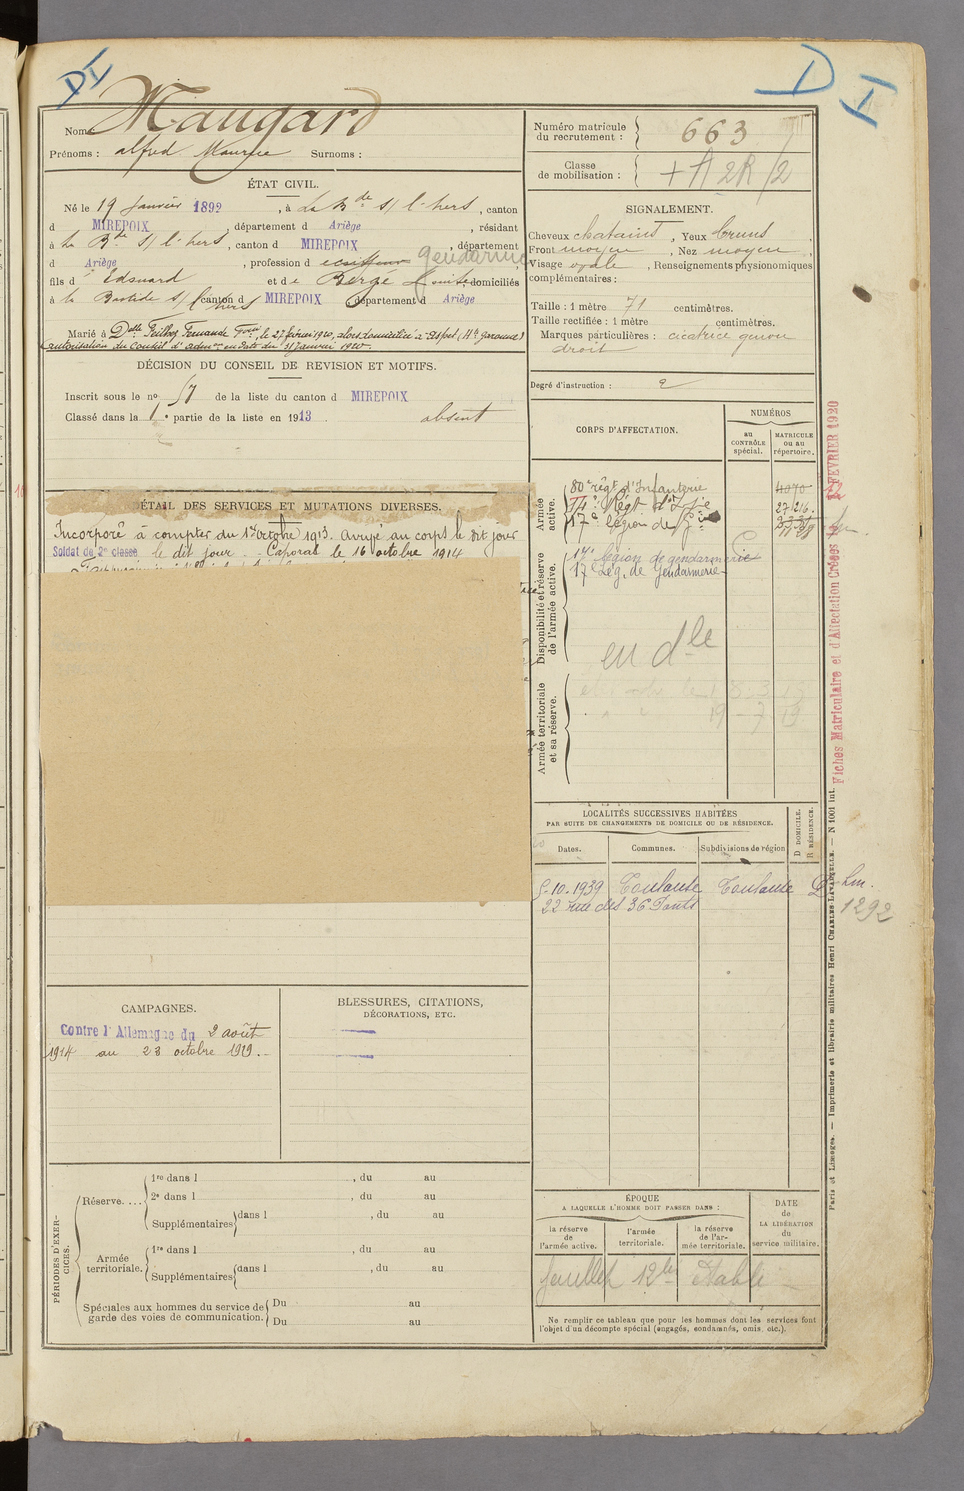 D I
D I
Nom : Maugard
Prénoms : Alfred Maurice Surnoms :
Numéro matricule du recrutement : 663
Classe de mobilisation :
ÉTAT CIVIL.
Né le 19 Janvier 1892, à La B.de s/ l'hers, canton
d MIREPOIX, département d Ariège, résidant
à la B.de s/ l'hers, canton d MIREPOIX, département
d Ariège, profession d gendarme
fils d Edouard et de Bergé Louise domiciliés
à la Bastide s/ l'hers canton d MIREPOIX département d Ariège
Marié à Delle Fernande, le 27 février 1920, alors domiciliée à Aspet (Hte Garonne)
(autorisation du Conseil d'admon en date du 31 Janvier 1920.
SIGNALEMENT.
Cheveux chatains, Yeux bruns,
Front moyen, Nez moyen,
Visage ovale, Renseignements physionomiques
complémentaires :
Taille : 1 mètre 71 centimètres.
Taille rectifiée : 1 mètre centimètres.
Marques particulières : cicatrice genou
droit
Degré d'instruction : 2
DÉCISION DU CONSEIL DE REVISION ET MOTIFS.
Inscrit sous le no 57 de la liste du canton d MIREPOIX
Classé dans la 1e partie de la liste en 1913. absent
DÉTAIL DES SERVICES ET MUTATIONS DIVERSES.
Incorporé à compter du 1er octobre 1913. Arrivé au corps le dit jour
Soldat de 2e classe le dit jour - Caporal le 16 octobre 1914
CORPS D'AFFECTATION.
NUMÉROS
au CONTRÔLE spécial.
MATRICULE ou au répertoire.
Armée active.
80e régt d'Infanterie 4070
Régt d'Inf.ie 27216
17e légion de G.ie
Disponibilité et réserve de l'armée active.
17e légion de gendarmerie
17e Lég. de Gendarmerie
en dle
Armée territoriale et sa réserve.
Fiches Matriculaire et d'Affectation Créées le FÉVRIER 1920
LOCALITÉS SUCCESSIVES HABITÉES
PAR SUITE DE CHANGEMENTS DE DOMICILE OU DE RÉSIDENCE.
Dates. Communes. Subdivisions de région
D DOMICILE.
R RÉSIDENCE.
5-10.1939 Toulouse Toulouse
22 rue des 36 Ponts
1292
CAMPAGNES.
Contre l'Allemagne du 2 août
1914 au 23 octobre 1919.
BLESSURES, CITATIONS,
DÉCORATIONS, ETC.
PÉRIODES D'EXERCICES.
Réserve....
1re dans l , du au
2e dans l , du au
Supplémentaires dans l , du au
Armée territoriale.
1re dans l , du au
Supplémentaires dans l , du au
Spéciales aux hommes du service de garde des voies de communication.
Du au
Du au
ÉPOQUE
A LAQUELLE L'HOMME DOIT PASSER DANS :
la réserve de l'armée active.
l'armée territoriale.
la réserve de l'armée territoriale.
DATE de LA LIBÉRATION du service militaire.
Ne remplir ce tableau que pour les hommes dont les services font
l'objet d'un décompte spécial (engagés, condamnés, omis, etc.).
Paris et Limoges. — Imprimerie et librairie militaires Henri CHARLES-LAVAUZELLE. — N 1001 int.